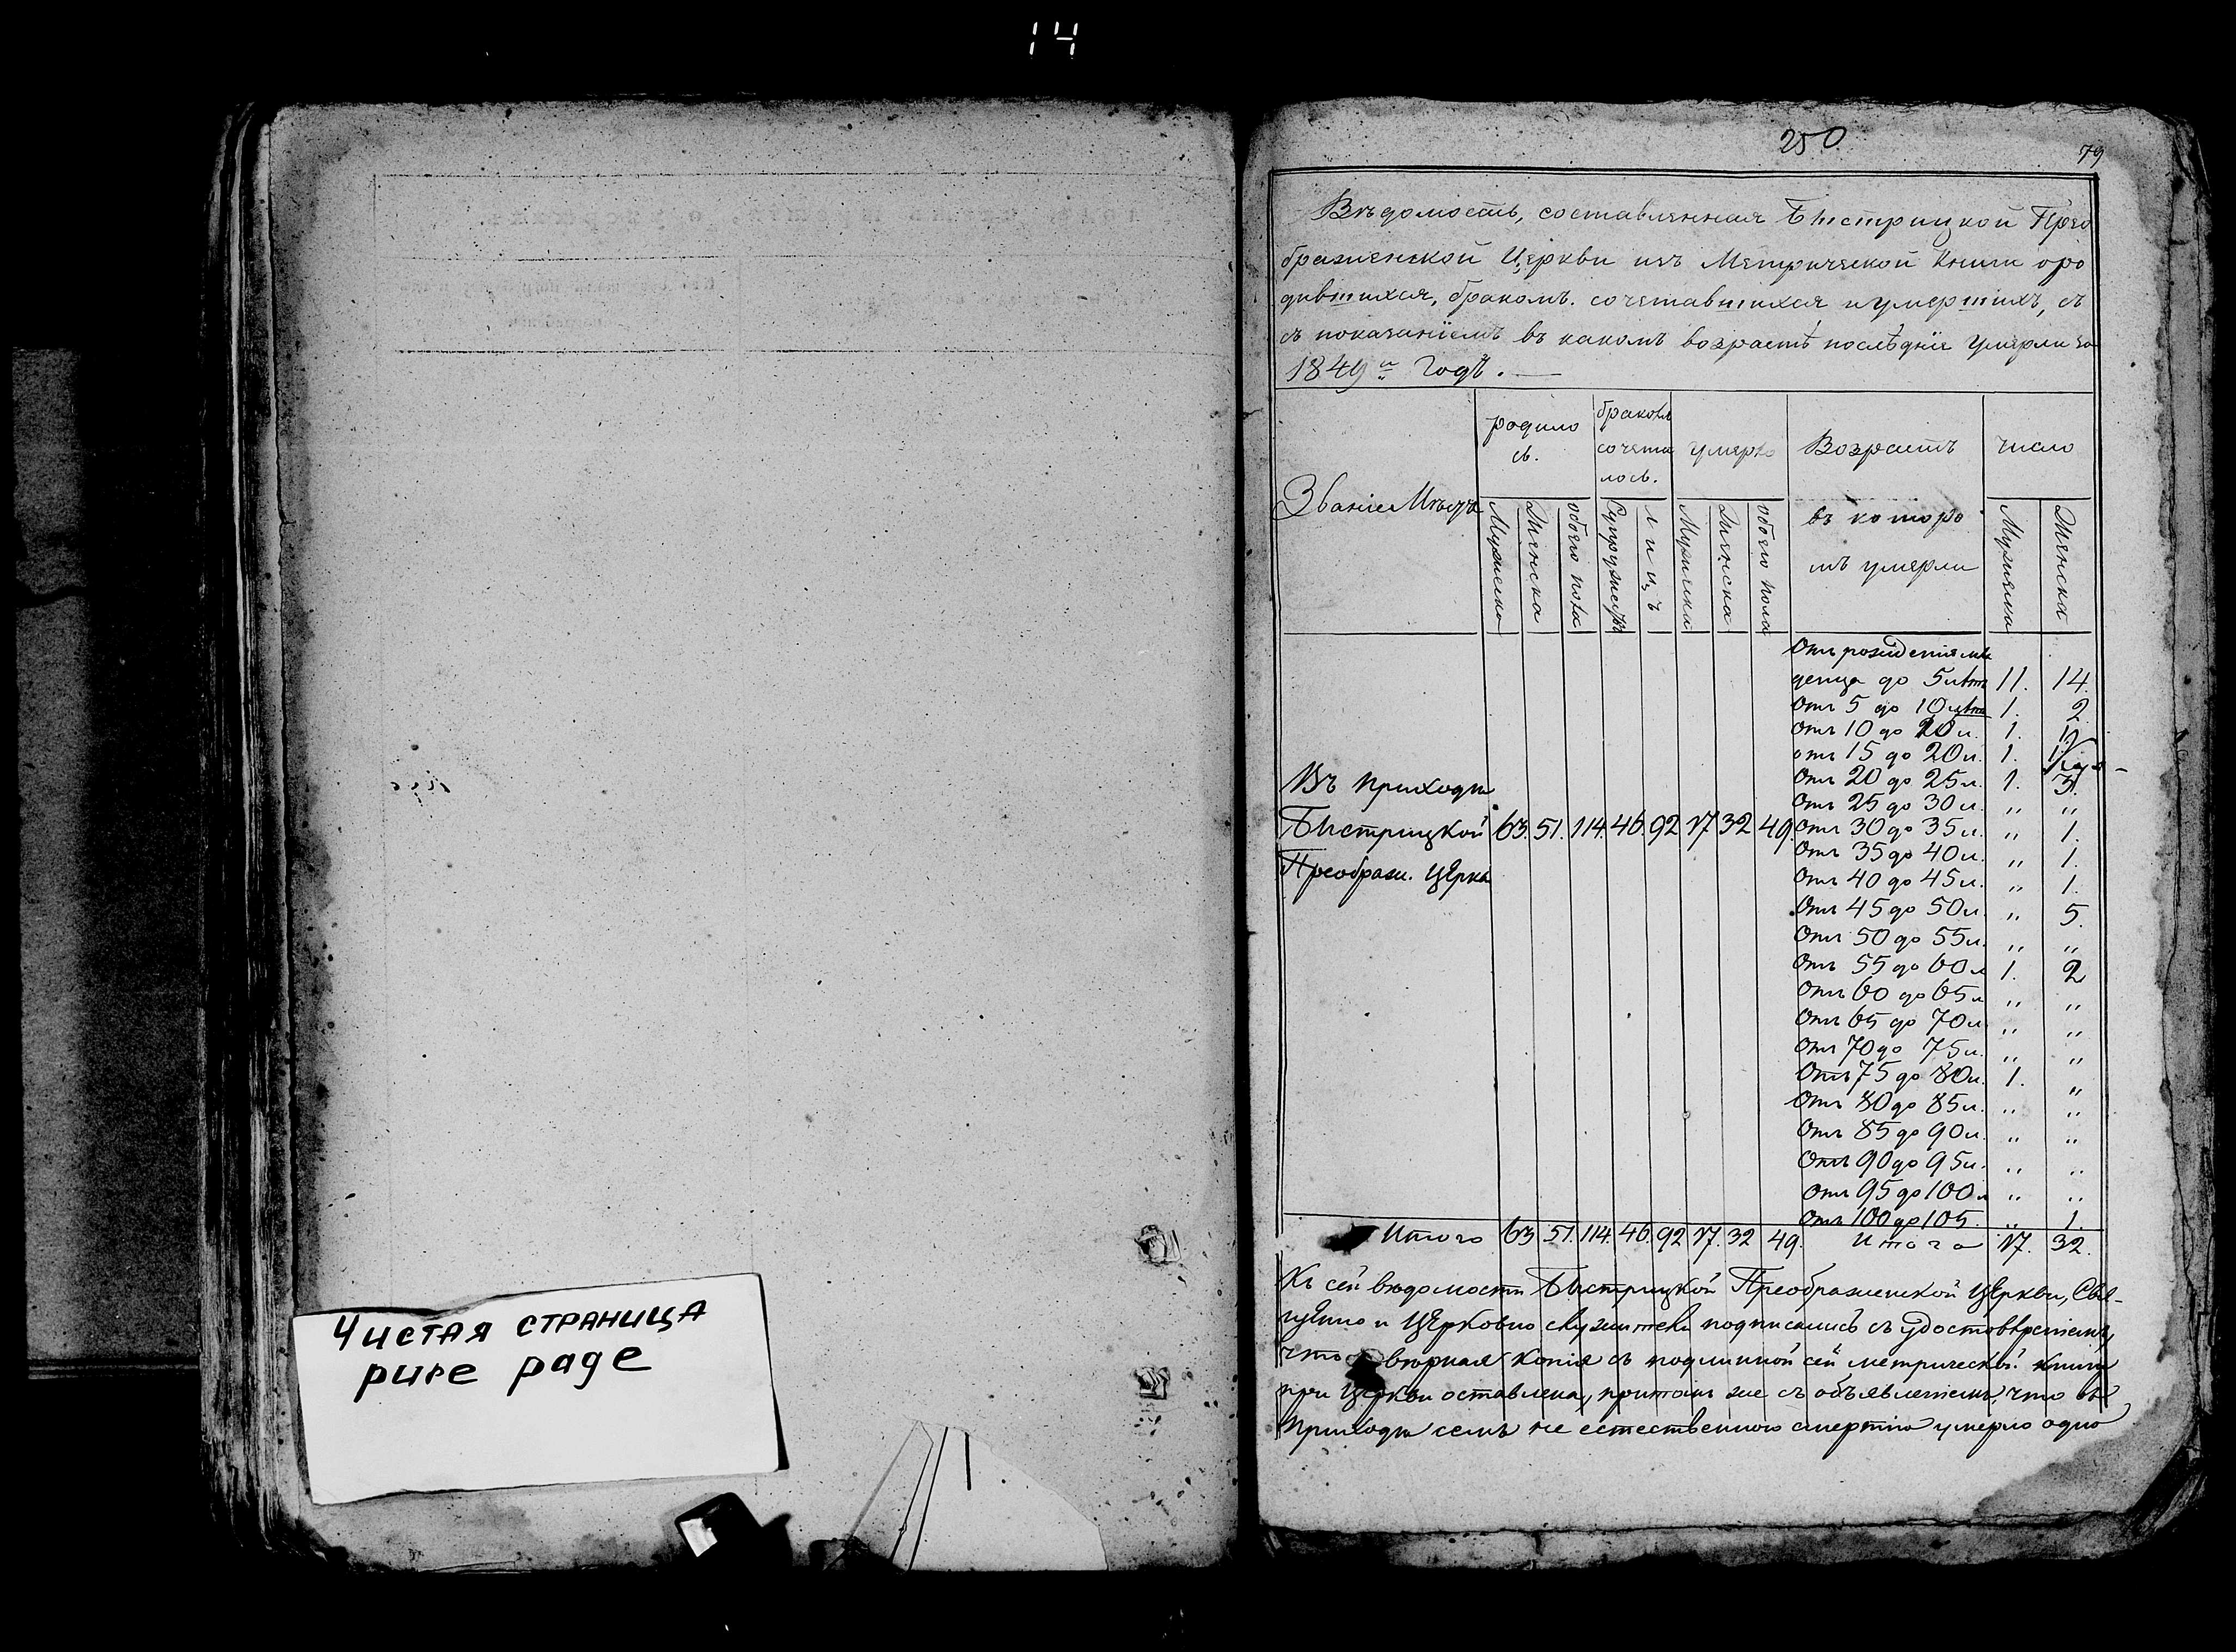 14
Чистая страница
pure page
250
79
Вѣдомость, составленная Быстрицкой Прео
браженской Церкви изъ Метрической Книги оро
дившихся, бракомъ. сочетавшихся и умершихъ, съ
съ показаніемъ въ какомъ возрастѣ послѣдніе умерли за
1849й Годъ.
Званіе Мѣстъ
родило
сь.
бракомъ
сочета
лось.
умерло
Возрастъ
въ которо
мъ умерли
число
Мужеска
Женска
обоего пола
Супружествъ
лицъ
Мужеска
Женска
обоего пола
Мужеска
Женска
Отъ рожденія мла
денца до 5 лѣтъ 11. 14.
Отъ 5 до 10 лѣтъ 1. 2
Отъ 10 до 20 л. 1.
отъ 15 до 20 л. 1.
Отъ 20 до 25 л. 1. 3.
Отъ 25 до 30 л. " "
Отъ 30 до 35 л. " 1.
Отъ 35 до 40 л. " 1.
Отъ 40 до 45 л. " 1.
Отъ 45 до 50 л. " 5.
Отъ 50 до 55 л. " "
Отъ 55 до 60 л 1. 2
Отъ 60 до 65 л " "
Отъ 65 до 70 л " "
Отъ 70 до 75 л. " "
Отъ 75 до 80 л. 1. "
Отъ 80 до 85 л. " "
Отъ 85 до 90 л. " "
Отъ 90 до 95 л. " "
Отъ 95 до 100 л " "
Отъ 100 до 105. " 1.
Въ приходѣ
Быстрицкой 63. 51. 114. 46. 92 17 32 49.
Преображ. Церкв
Итого 63 51. 114. 46. 92 17. 32 49. Итого 17. 32.
Къ сей вѣдомости Быстрицкой Преображенской Церкви, Свя-
щенно и Церковно служители подписались съ удостовѣреніемъ,
что вѣрная копія съ подлинной сей метрической книги
при Церкви оставлена, притомъ же съ объявленіемъ, что въ
Приходѣ семъ не естественною смертію умерло одно